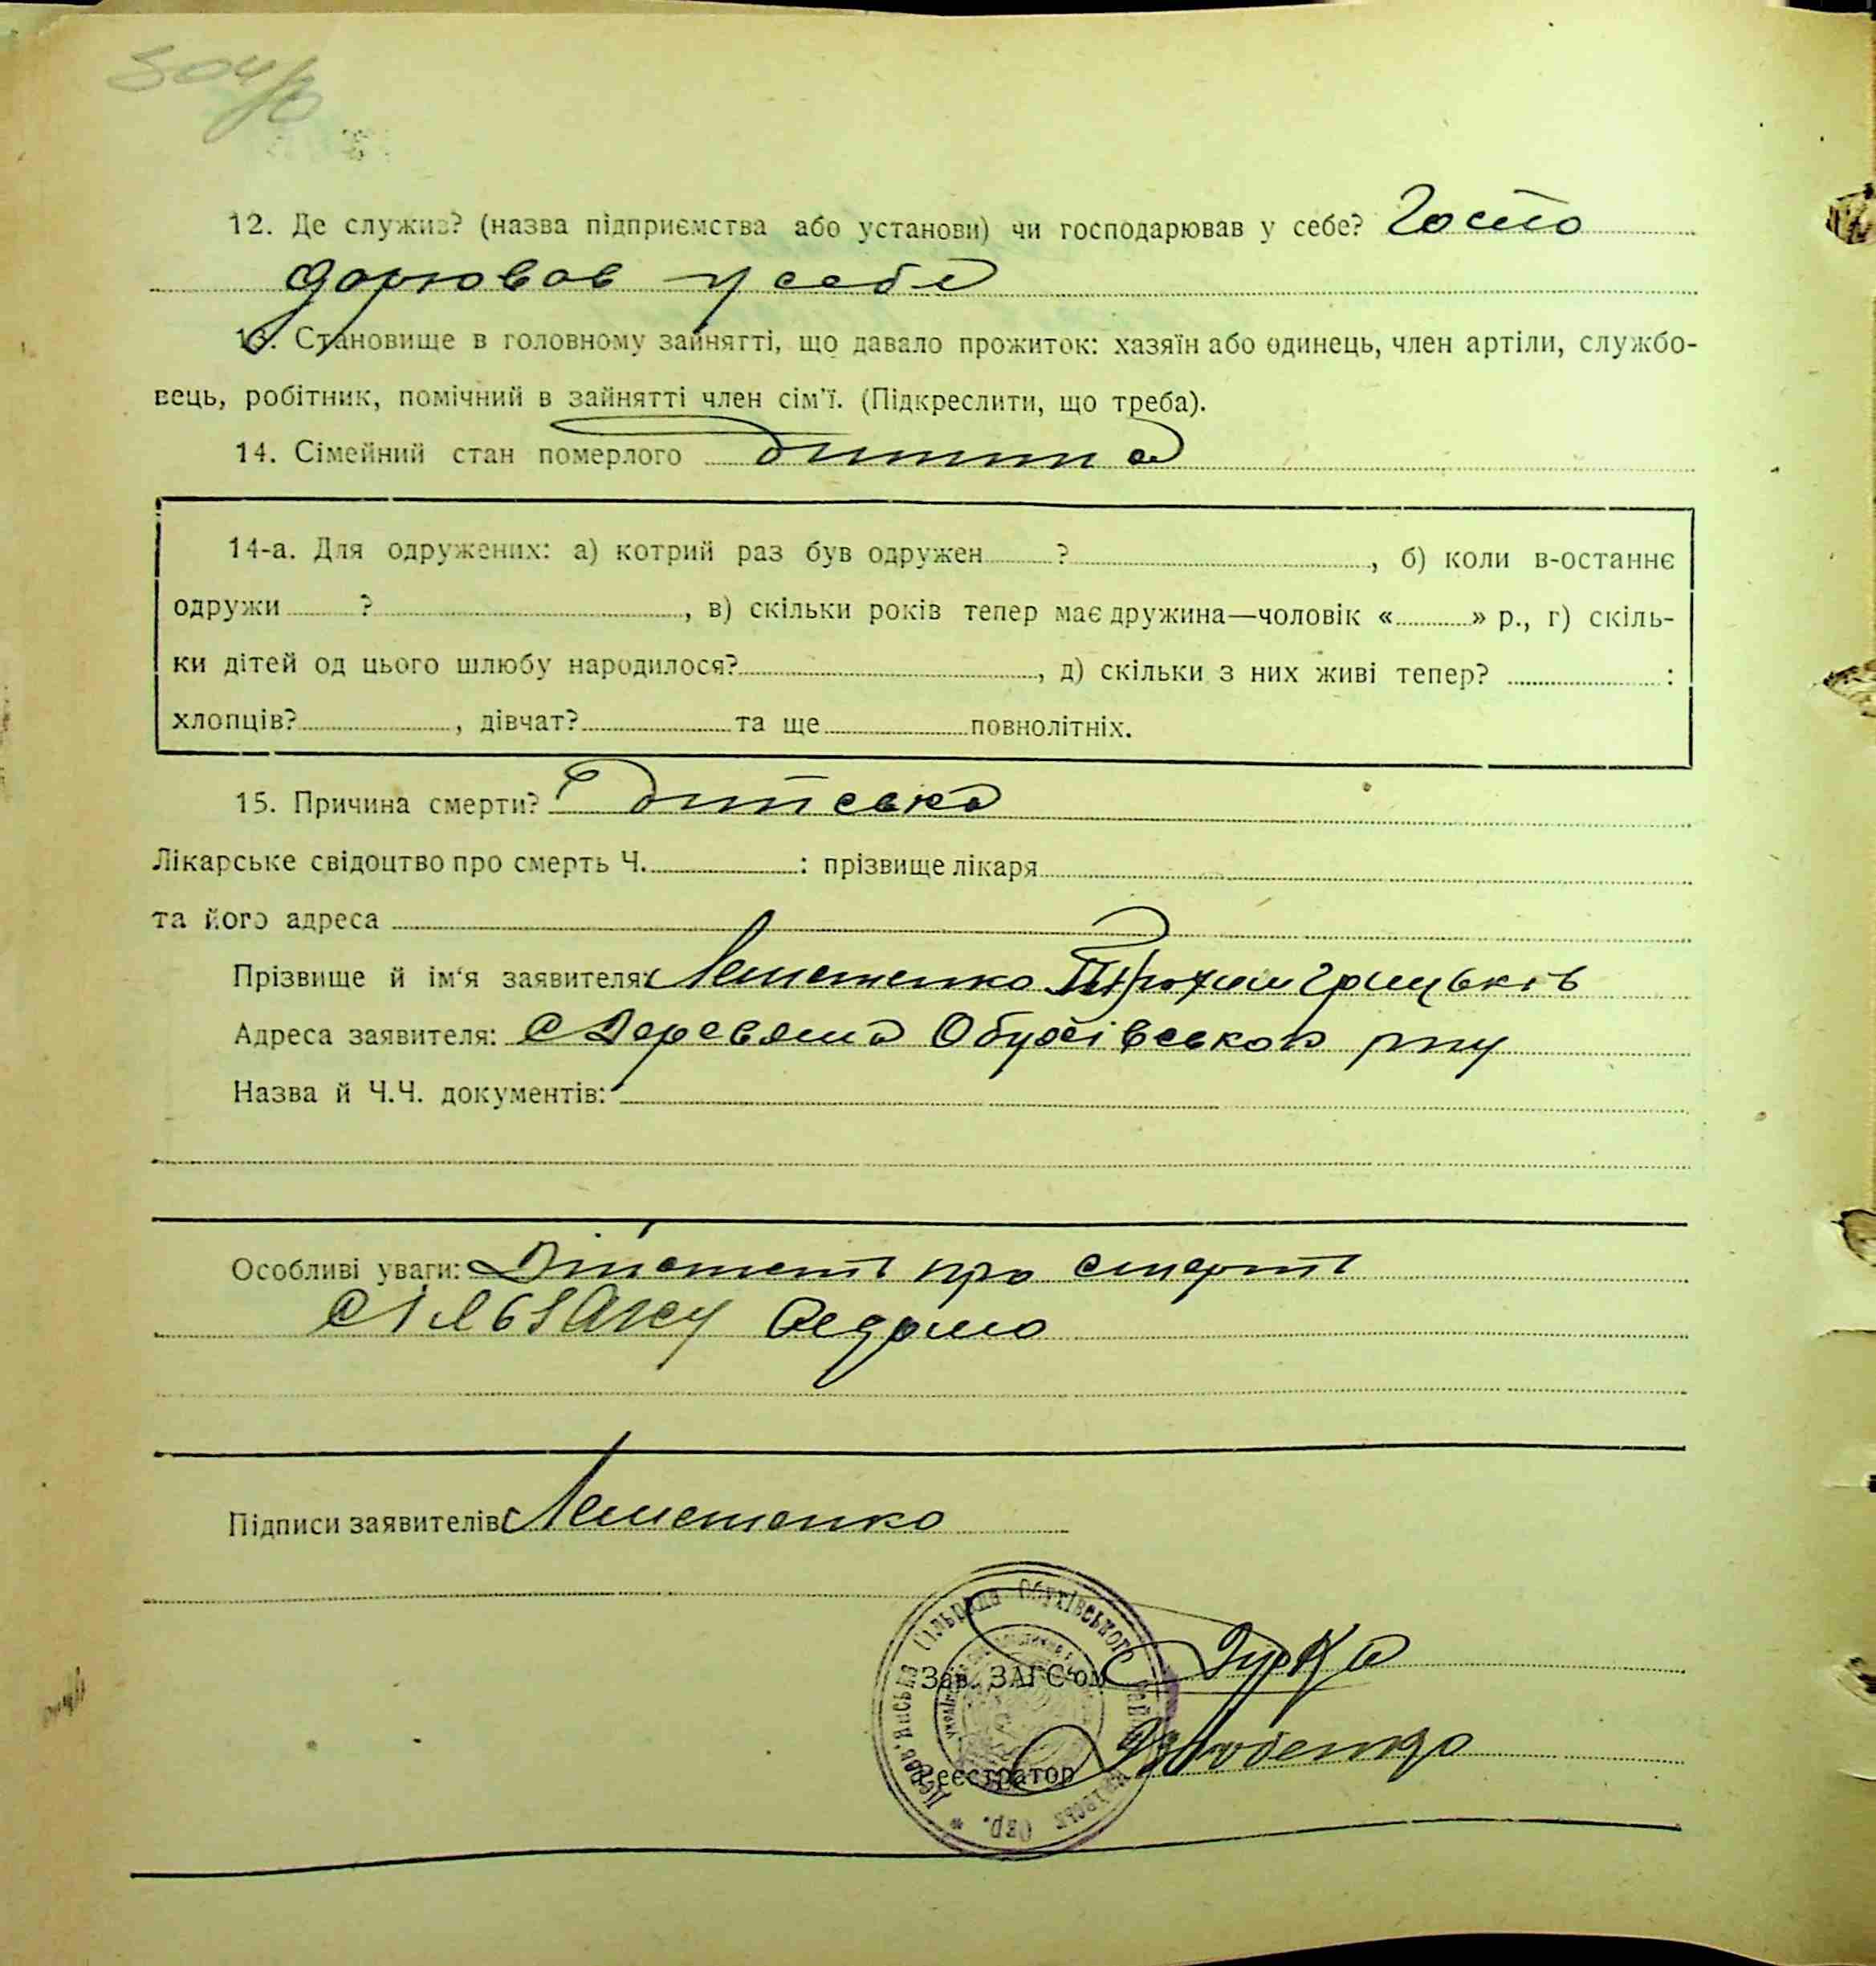 12. Де служив? (назва підприємства або установи) чи господарював у себе? Госпо
дорював у себе
13. Становище в головному зайнятті, що давало прожиток: хазяїн або одинець, член артіли, службо-
вець, робітник, помічний в зайнятті член сім'ї. (Підкреслити, що треба).
14. Сімейний стан померлого дитина
14-а. Для одружених: а) котрий раз був одружен ? , б) коли в-останнє
одружи ? , в) скільки років тепер має дружина—чоловік « » р., г) скіль-
ки дітей од цього шлюбу народилося? , д) скільки з них живі тепер? :
хлопців? , дівчат? та ще повнолітніх.
15. Причина смерти? Дитська
Лікарське свідоцтво про смерть Ч. : прізвище лікаря
та його адреса
Прізвище й ім'я заявителя: Лемешенко Трохим Грицьків
Адреса заявителя: с Деревяна Обухівського р-ну
Назва й Ч.Ч. документів:
Особливі уваги: про смерть
Підписи заявителів Лемешенко
Дерев'янська Сільрада Обухівського Київськ Окр.
Зав. ЗАГС'ом
Реєстратор